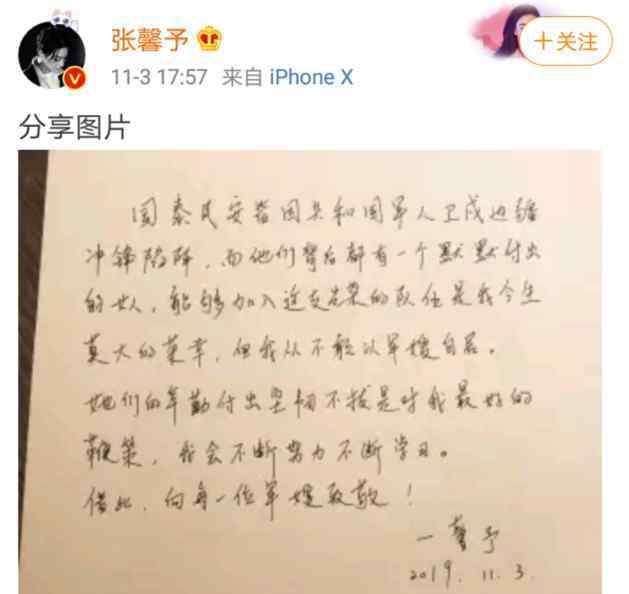 张馨予
11-3 17:57 来自 iPhone X
+关注
分享图片
国泰民安皆因共和国军人卫戍边疆
冲锋陷阵，而他们背后都有一个默默付出
的女人，能够加入这支光荣的队伍是我今生
莫大的荣幸，但我从不能以军嫂自居。
她们的辛勤付出坚韧不拔是对我最好的
鞭策，我会不断努力不断学习。
借此，向每一位军嫂致敬！
—馨予
2019.11.3.